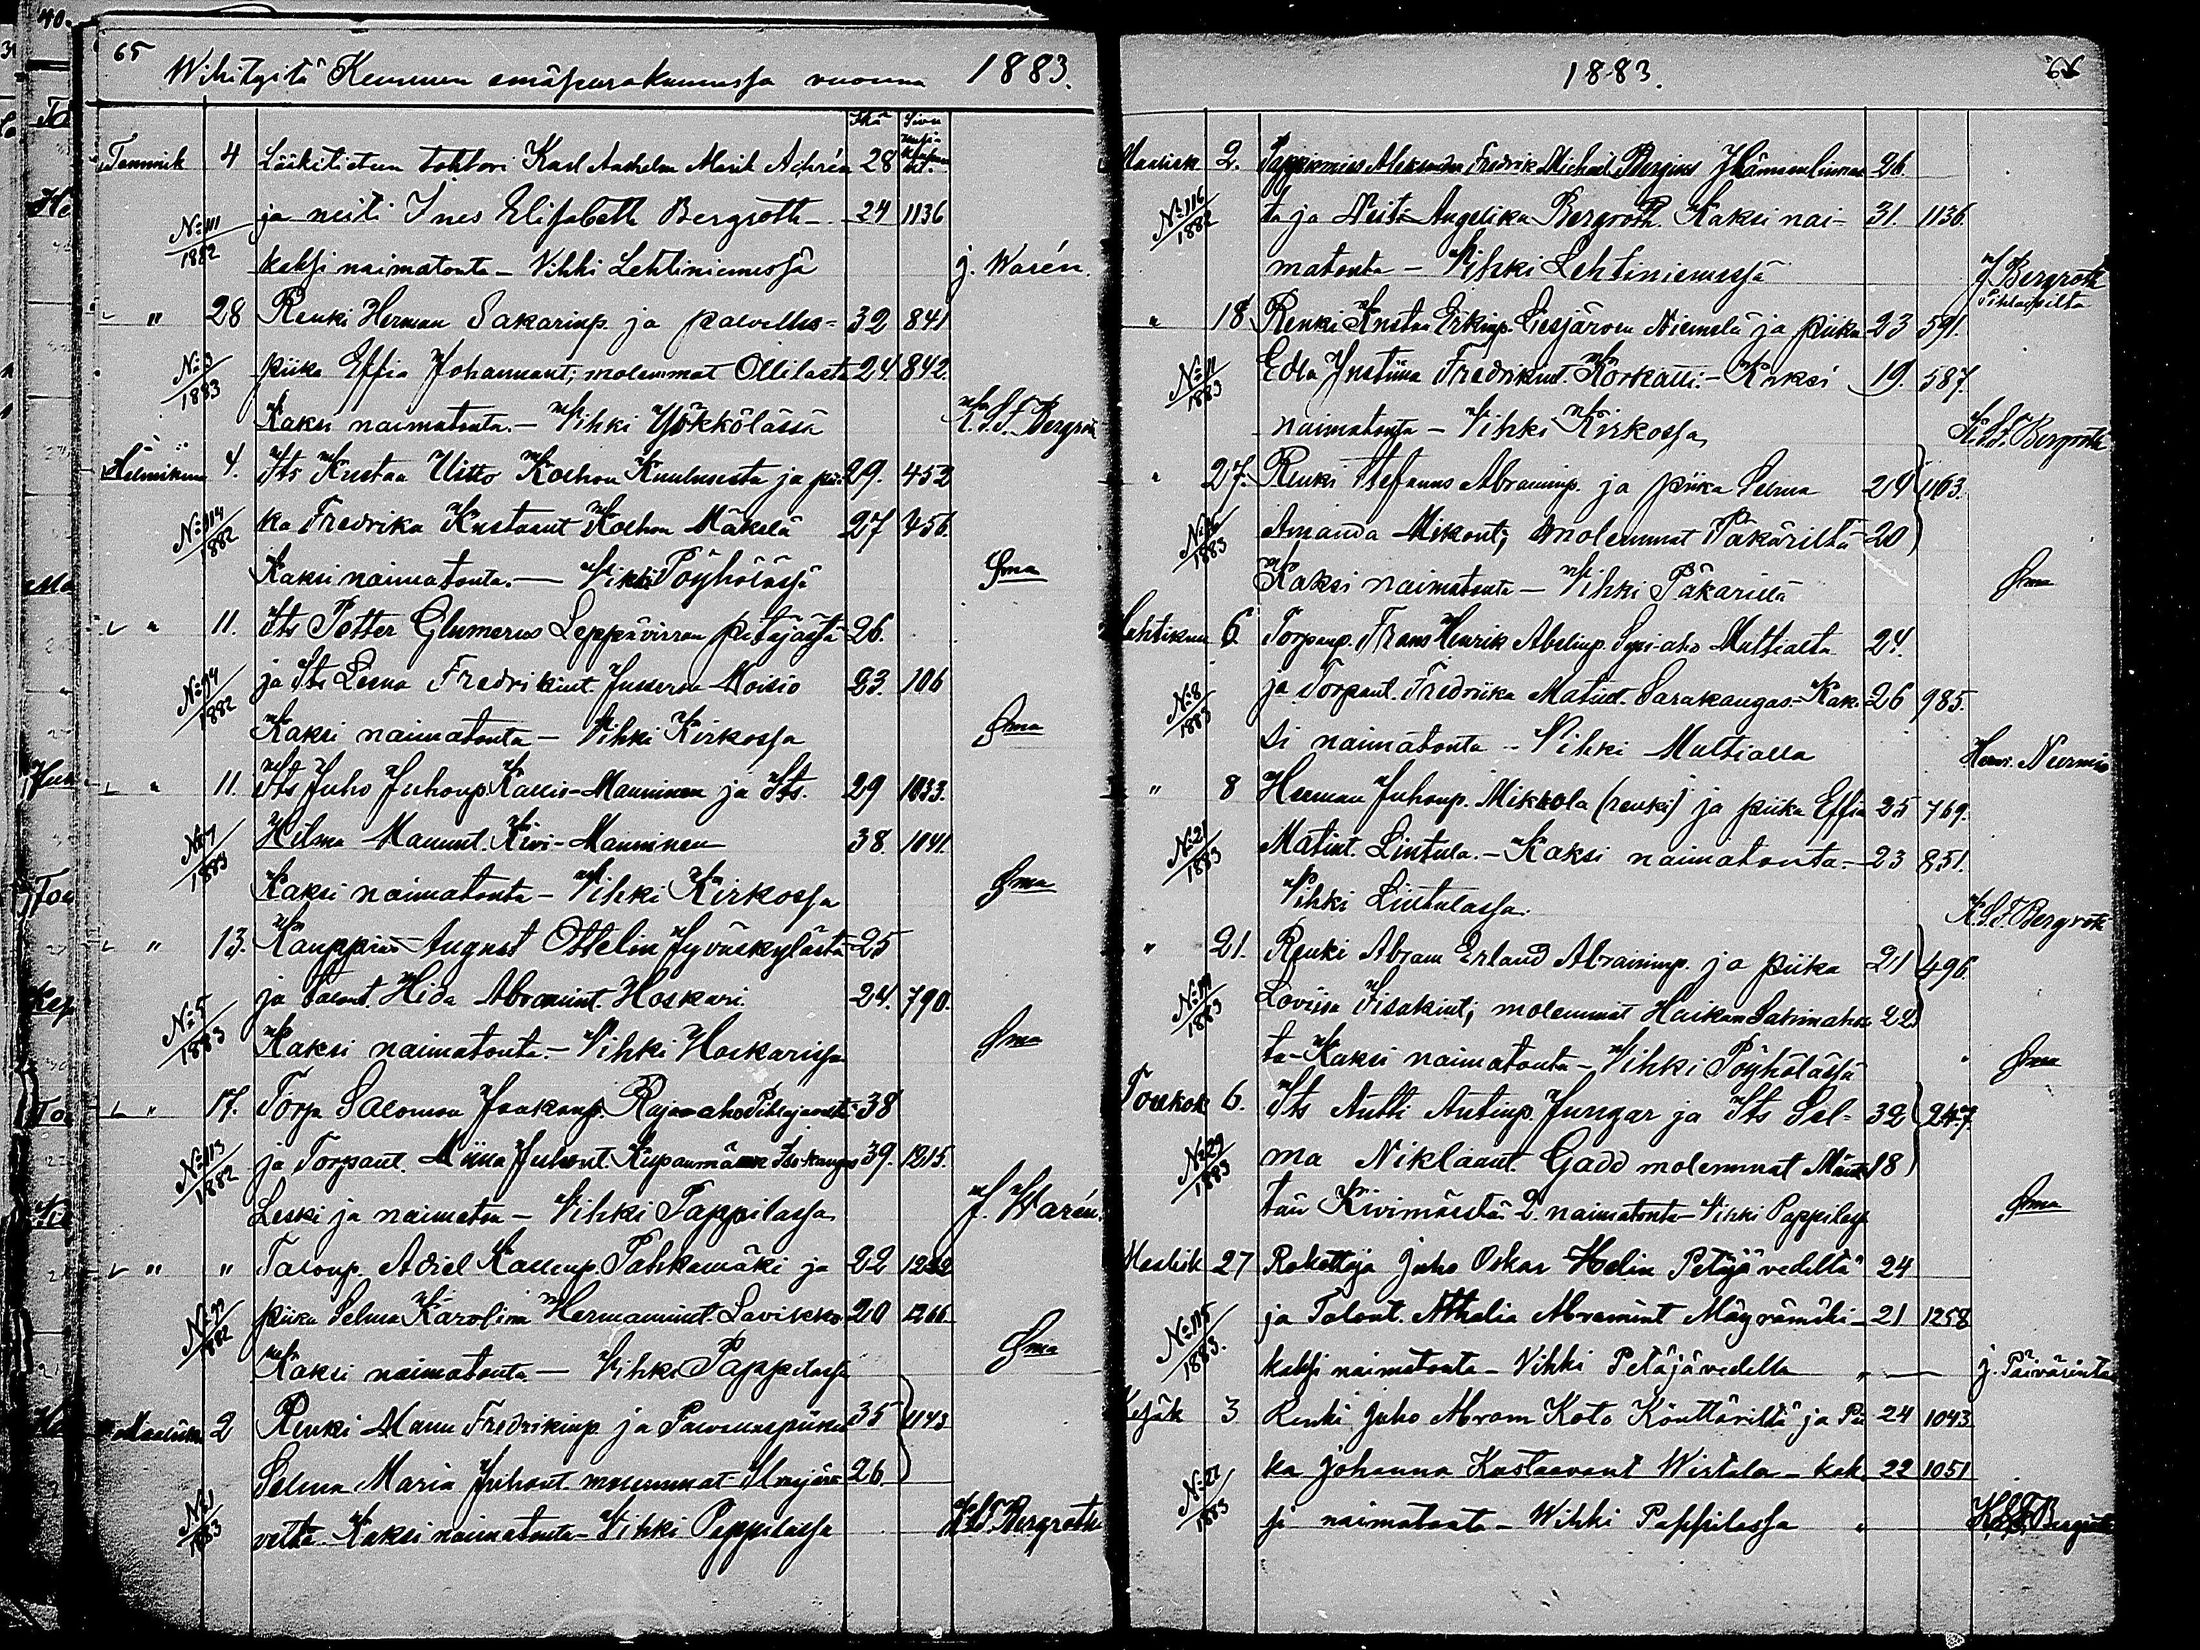 65
Wihityitä Keuruun emäseurakunnassa vuonna 1883.
Ikä Sivu
Tammik 4 Lääketieteen tohtori Karl Anshelm Marik 28
ja neiti Ines Elisabeth Bergroth - 24 1136
No 111/1882
kaksi naimatonta - Vihki Lehtiniemessä J. Warén.
" 28 Renki Herman Sakarinp. ja palvellus= 32 841
No 3/1883
piika Effia Johannant; molemmat Ollilasta 24. 842.
Kaksi naimatonta. - Vihki Yökkölässä K.S.F. Bergroth
Helmikuu 4. Its Kustaa Uitto Kolhon Kuulusesta ja pii- 29. 452
No 114/1882
ka Fredrika Kustaant Kolhon Mäkelä 27 456.
Kaksi naimatonta. - Vihki Pöyhölässä Sma
" 11. Its Petter Glumerus Leppävirran pitäjästä 26.
No 94/1882
ja Its Leena Fredrikint. Jukeran Moisio 23. 106
Kaksi naimatonta - Vihki Kirkossa Sma
" 11. Its Juho Juhonp. Kallio-Manninen ja Its. 29 1033.
No 7/1883
Hilma Maununt. Kivi-Manninen 38. 1041.
Kaksi naimatonta - Vihki Kirkossa Sma
" 13. Kauppias August Ottelin Jyväskylästä 25
ja Talont. Hida Abramint. Hoskari. 24. 790.
No 5/1883
Kaksi naimatonta. - Vihki Hoskarissa Sma
" 17. Torp. Salomon Jaakonp. Rajanaho Pihlajavedeltä 38
No 113/1882
ja Torpant. Miina Juhont. Kupanmäen Iso-kangas 39. 1215.
Leski ja naimaton - Vihki Pappilassa J. Warén.
" " Talonp. Adiel Kallenp. Pahkamäki ja 22 1222
piika Selma Karolina Hermannint. Lavikko 20 1266.
Kaksi naimatonta. - Vihki Pappilassa Sma
Maalisk 2 Renki Manu Fredrikinp. ja Palveluspiika 35 1143
Selma Maria Juhont. molemmat 26.
No 1/1883
veltta - Kaksi naimatonta - Vihki Pappilassa K.S.F. Bergroth
1883. 66
Maalisk 2. Pappismies Aleksander Fredrik Michael Bergius Hämeenlinnas 26.
No 116/1882
ta ja Neiti Angelika Bergroth. Kaksi nai- 31. 1136.
matonta - Vihki Lehtiniemessä J Bergroth
Pihlajavilta
" 18 Renki Kustaa Erkinp. Liesjärven Niemelä ja piika 23 591.
No 11/1883
Edla Justiina Fredrikint. Korkatti. - Kaksi 19. 587.
naimatonta - Vihki Kirkossa K.S.F. Bergroth
" 27. Renki Stefanus Abraminp. ja piika Selma 24 1163.
No 16/1883
Amanda Mikont; molemmat Päkäriltä 20
Kaksi naimatonta - Vihki Päkärillä Sma
Huhtikuu 6 Torpanp. Frans Henrik Abelinp. Syri-aho Multialta 24.
No 8/1883
ja Torpant. Fredrika Matint. Sarakangas - Kak- 26 985.
si naimatonta - Vihki Multialla Herm. Nurmio
" 8 Herman Juhonp. Mikkola (renki) ja piika Effia 25 769.
No 21/1883
Matint. Lintula. - Kaksi naimatonta. - 23 851.
Vihki Lintulassa. K.S.F. Bergroth
" 21. Renki Abram Erland Abraminp. ja piika 21 496.
No 19/1883
Loviisa Iisakint; molemmat Huikan Sahinaho 22
ta - Kaksi naimatonta - Vihki Pöyhölässä " Sma
Toukok 6. Its Antti Antinp. Jungar ja Its Sel= 32 247.
No 29/1883
ma Niklaant. Gadd molemmat Mänt 18
tän Kivimäestä. 2. naimatonta - Vihki Pappilass Sma
Maalisk 27 Rakettaja Juho Oskar Helin Petäjävedeltä 24
ja Talont. Athalia Abramint Mäyrämäki - 21 1258
No 115/1883.
kaksi naimatonta - Vihki Petäjävedellä " — J. Päivärinta
Kesäk 3 Renki Juho Abram Koto Könttäriltä ja Pii 24 1043
ka Johanna Kustaavant Wirtala - kak 22 1051
No 27/1883
si naimatonta - Wihki Pappilassa " K.S.F. Bergroth